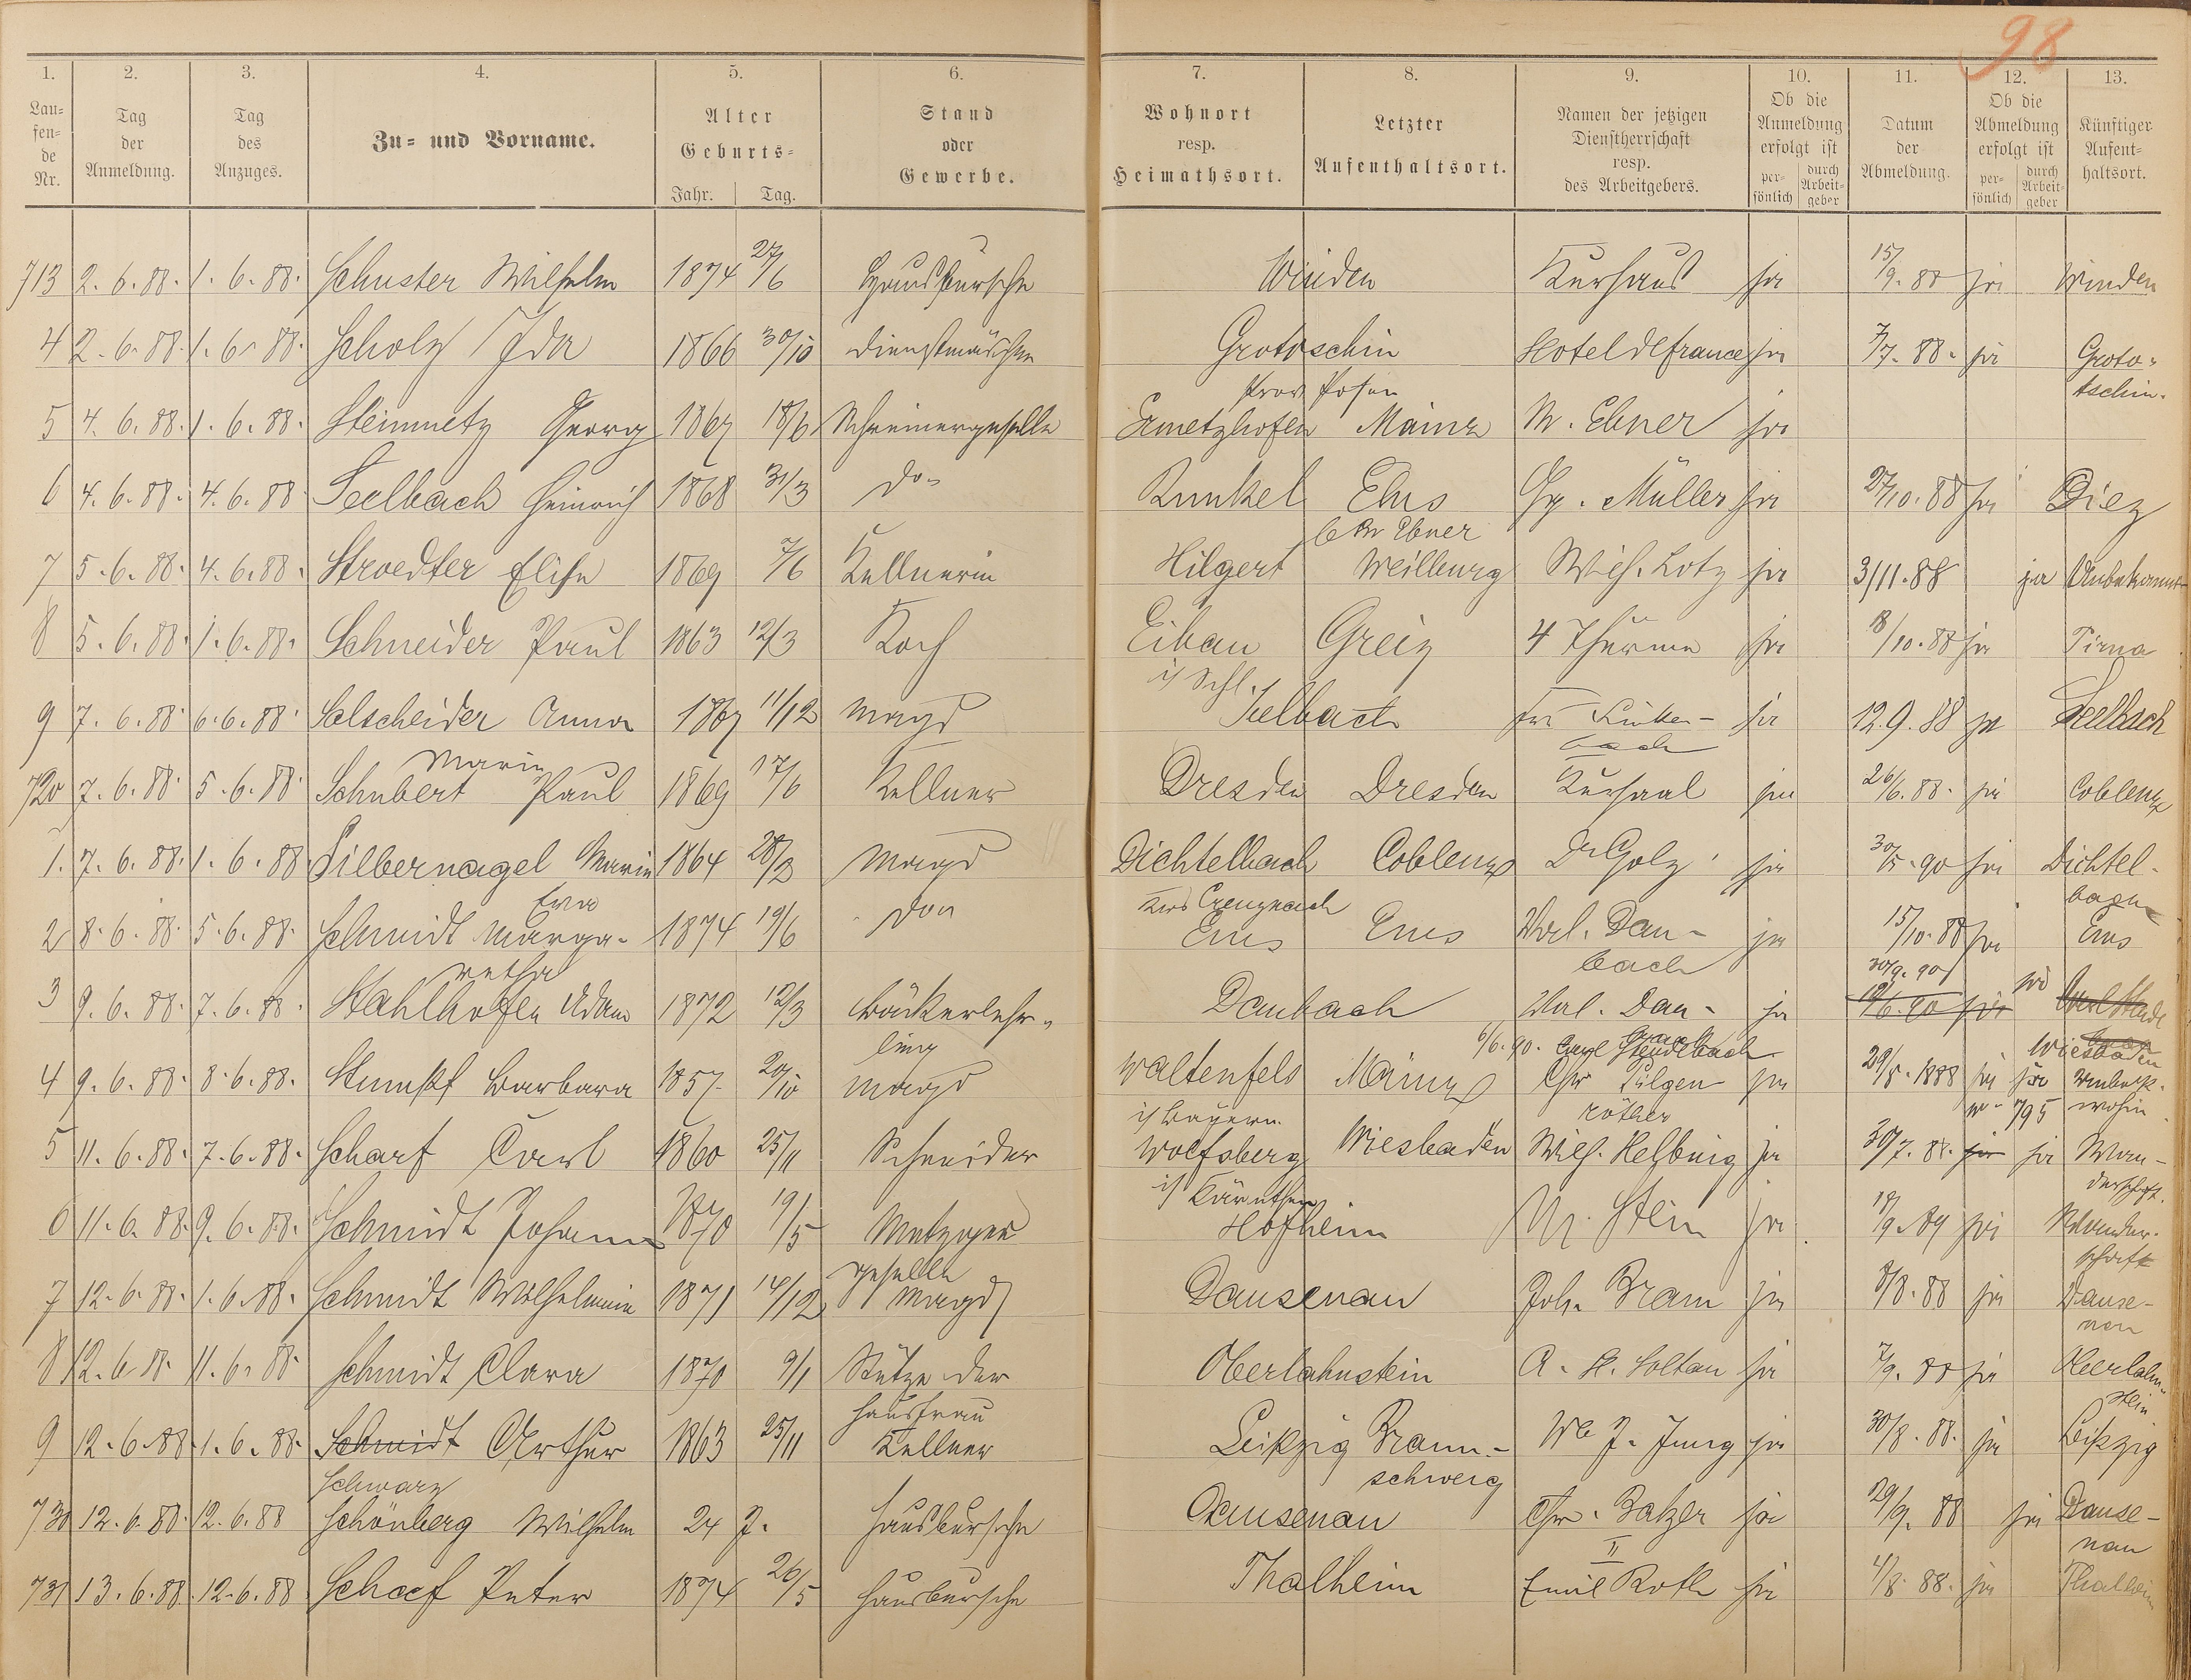 98
1. 2. 3. 4. 5. 6. 7. 8. 9. 10. 11. 12. 13.
Lau=fen=de Nr. Tag der Anmeldung. Tag des Anzuges. Zu= und Vorname. Alter Geburts= Jahr. Tag. Stand oder Gewerbe. Wohnort resp. Heimathsort. Letzter Aufenthaltsort. Namen der jetzigen Dienstherrschaft resp. des Arbeitgebers. Ob die Anmeldung erfolgt ist per=sönlich durch Arbeit=geber Datum der Abmeldung. Ob die Abmeldung erfolgt ist per=sönlich durch Arbeit=geber Künftiger Aufent=haltsort.
713 2. 6. 88. 1. 6. 88. Schuster Wilhelm 1874 27/6 Hausbursche Winden Kurhaus ja 15/9. 88 ja Winden
4 2. 6. 88. 1. 6. 88. Scholz Ida 1866 30/10 Dienstmädchen Grotoschin Hotel de france ja 7/7. 88. ja Groto=
Prov Posen tschin.
5 4. 6. 88. 1. 6. 88. Steinmetz Georg 1867 18/6 Schreinergeselle Ermetzhofen Mainz W. Ebner ja
6 4. 6. 88. 4. 6. 88 Seelbach Heinrich 1868 31/3 do Runkel Ems Gg. Müller ja 27/10. 88 ja Diez
b W Ebner
7 5. 6. 88. 4. 6. 88. Stroedter Elise 1869 7/6 Kellnerin Hilgert Weilburg Wilh. Lotz ja 3/11. 88 ja Unbekannt
8 5. 6. 88. 1. 6. 88. Schneider Paul 1863 12/3 Koch Eibau Greiz 4 Thürme ja 18/10. 88 ja Pirna
i/ Schl.
9 7. 6. 88 6. 6. 88. Selscheider Anna 1867 11/12 Magd Seelbach Linken- ja 12. 9. 88 ja Seelbach
Marie bach
720 7. 6. 88. 5. 6. 88. Schubert Paul 1869 17/6 Kellner Dresden Dresden Kursaal ja 26/6. 88. ja Coblenz
1. 7. 6. 88. 1. 6. 88 Silbernagel Marie 1864 28/2 Magd Dichtelbach Coblenz Dr Golz ja 30/5. 90 ja Dichtel-
Eva Kreis Creuznach bach
2 8. 6. 88. 5. 6. 88. Schmidt Marga- 1874 19/6 do Ems Ems Wwe. Dau- ja 15/10. 88 ja Ems
retha bach 30/9. 90
3 9. 6. 88. 7. 6. 88. Stahlhofen Adam 1872 12/3 Bäckerlehr- Daubach Dau- ja 19/6. 90 ja
ling 6/6. 90. Carl Steudebach Wiesbaden
4 9. 6. 88. 8. 6. 88. Stumpf Barbara 1857 20/10 Magd Waltenfels Mainz Chr Pilgen- ja 29/8. 1888 ja ja Unbek.
i/ Bayern. röther 795 wohin
5 11. 6. 88. 7. 6. 88. Scharf Carl 1860 25/11 Schneider Wolfsberg Wiesbaden Wilh. Helbig ja 30/7. 88. ja ja Wan-
i/ Kärnthen derschft.
6 11. 6. 88. 9. 6. 88. Schmidt Johann 1870 19/5 Metzger Hofheim M. Stein ja 18/9. 89 ja Wander-
geselle schaft
7 12. 6. 88. 1. 6. 88. Schmidt Wilhelmine 1871 14/12 Magd Dausenau Joh. Bram ja 8/8. 88 ja Dause-
nau
8 12. 6. 88. 11. 6. 88. Schmidt Clara 1870 9/1 Stütze der Oberlahnstein A. H. Soltau ja 7/9. 88 ja Oberlahn-
Hausfrau stein
9 12. 6. 88. 1. 6. 88. Schmidt Arthur 1863 25/11 Kellner Leipzig Braun- We J. Jung ja 30/8. 88. ja Leipzig
Schwarz schweig
730 12. 6. 88. 12. 6. 88 Schönberg Wilhelm 24 J. Hausbursche Dausenau Chr. Balzer ja 29/9. 88 ja Dause-
II nau
731 13. 6. 88. 12. 6. 88 Schaef Peter 1874 26/5 Hausbursche Thalheim Emil Roth ja 4/8. 88. ja Thalheim